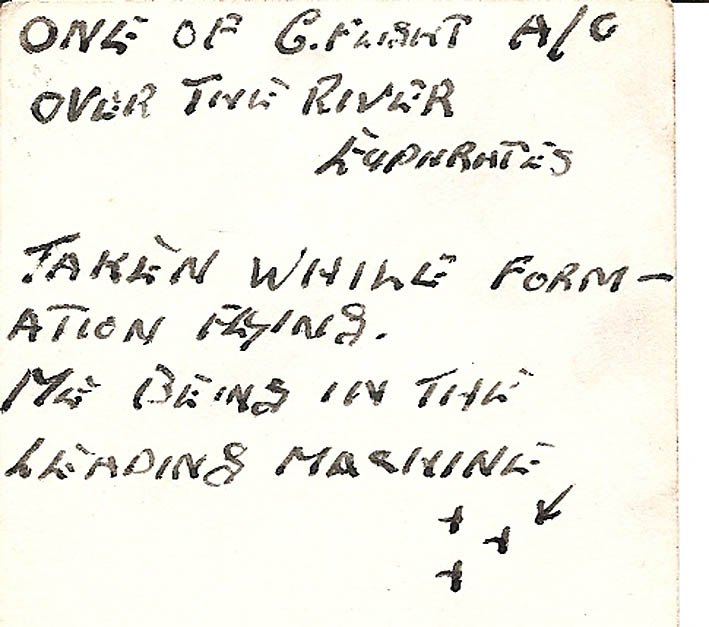 ONE OF G. FLIGHT A/C
OVER THE RIVER
EUPHRATES
TAKEN WHILE FORM-
ATION FLYING.
ME BEING IN THE
LEADING MACHINE